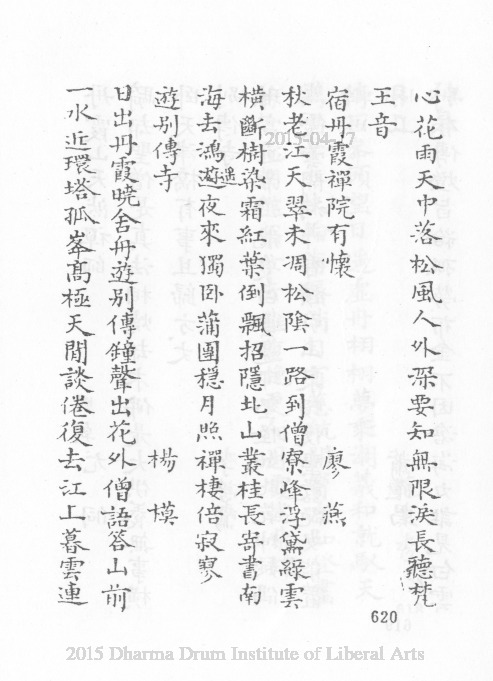 心花雨天中落松風人外深要知無限淚長聽梵
王音
宿丹霞禪院有懷 廖燕
秋老江天翠未凋松陰一路到僧寮峰浮黛綠雲
橫斷樹染霜紅葉倒飄招隱北山叢桂長寄書南
海去鴻遙夜來獨卧蒲團穩月照禪棲倍寂寥
遊別傳寺 楊模
日出丹霞曉舍舟遊別傳鐘聲出花外僧語答山前
一水近環塔孤峯高極天閒談倦復去江上暮雲連
620
2015-04-17
2015 Dharma Drum Institute of Liberal Arts